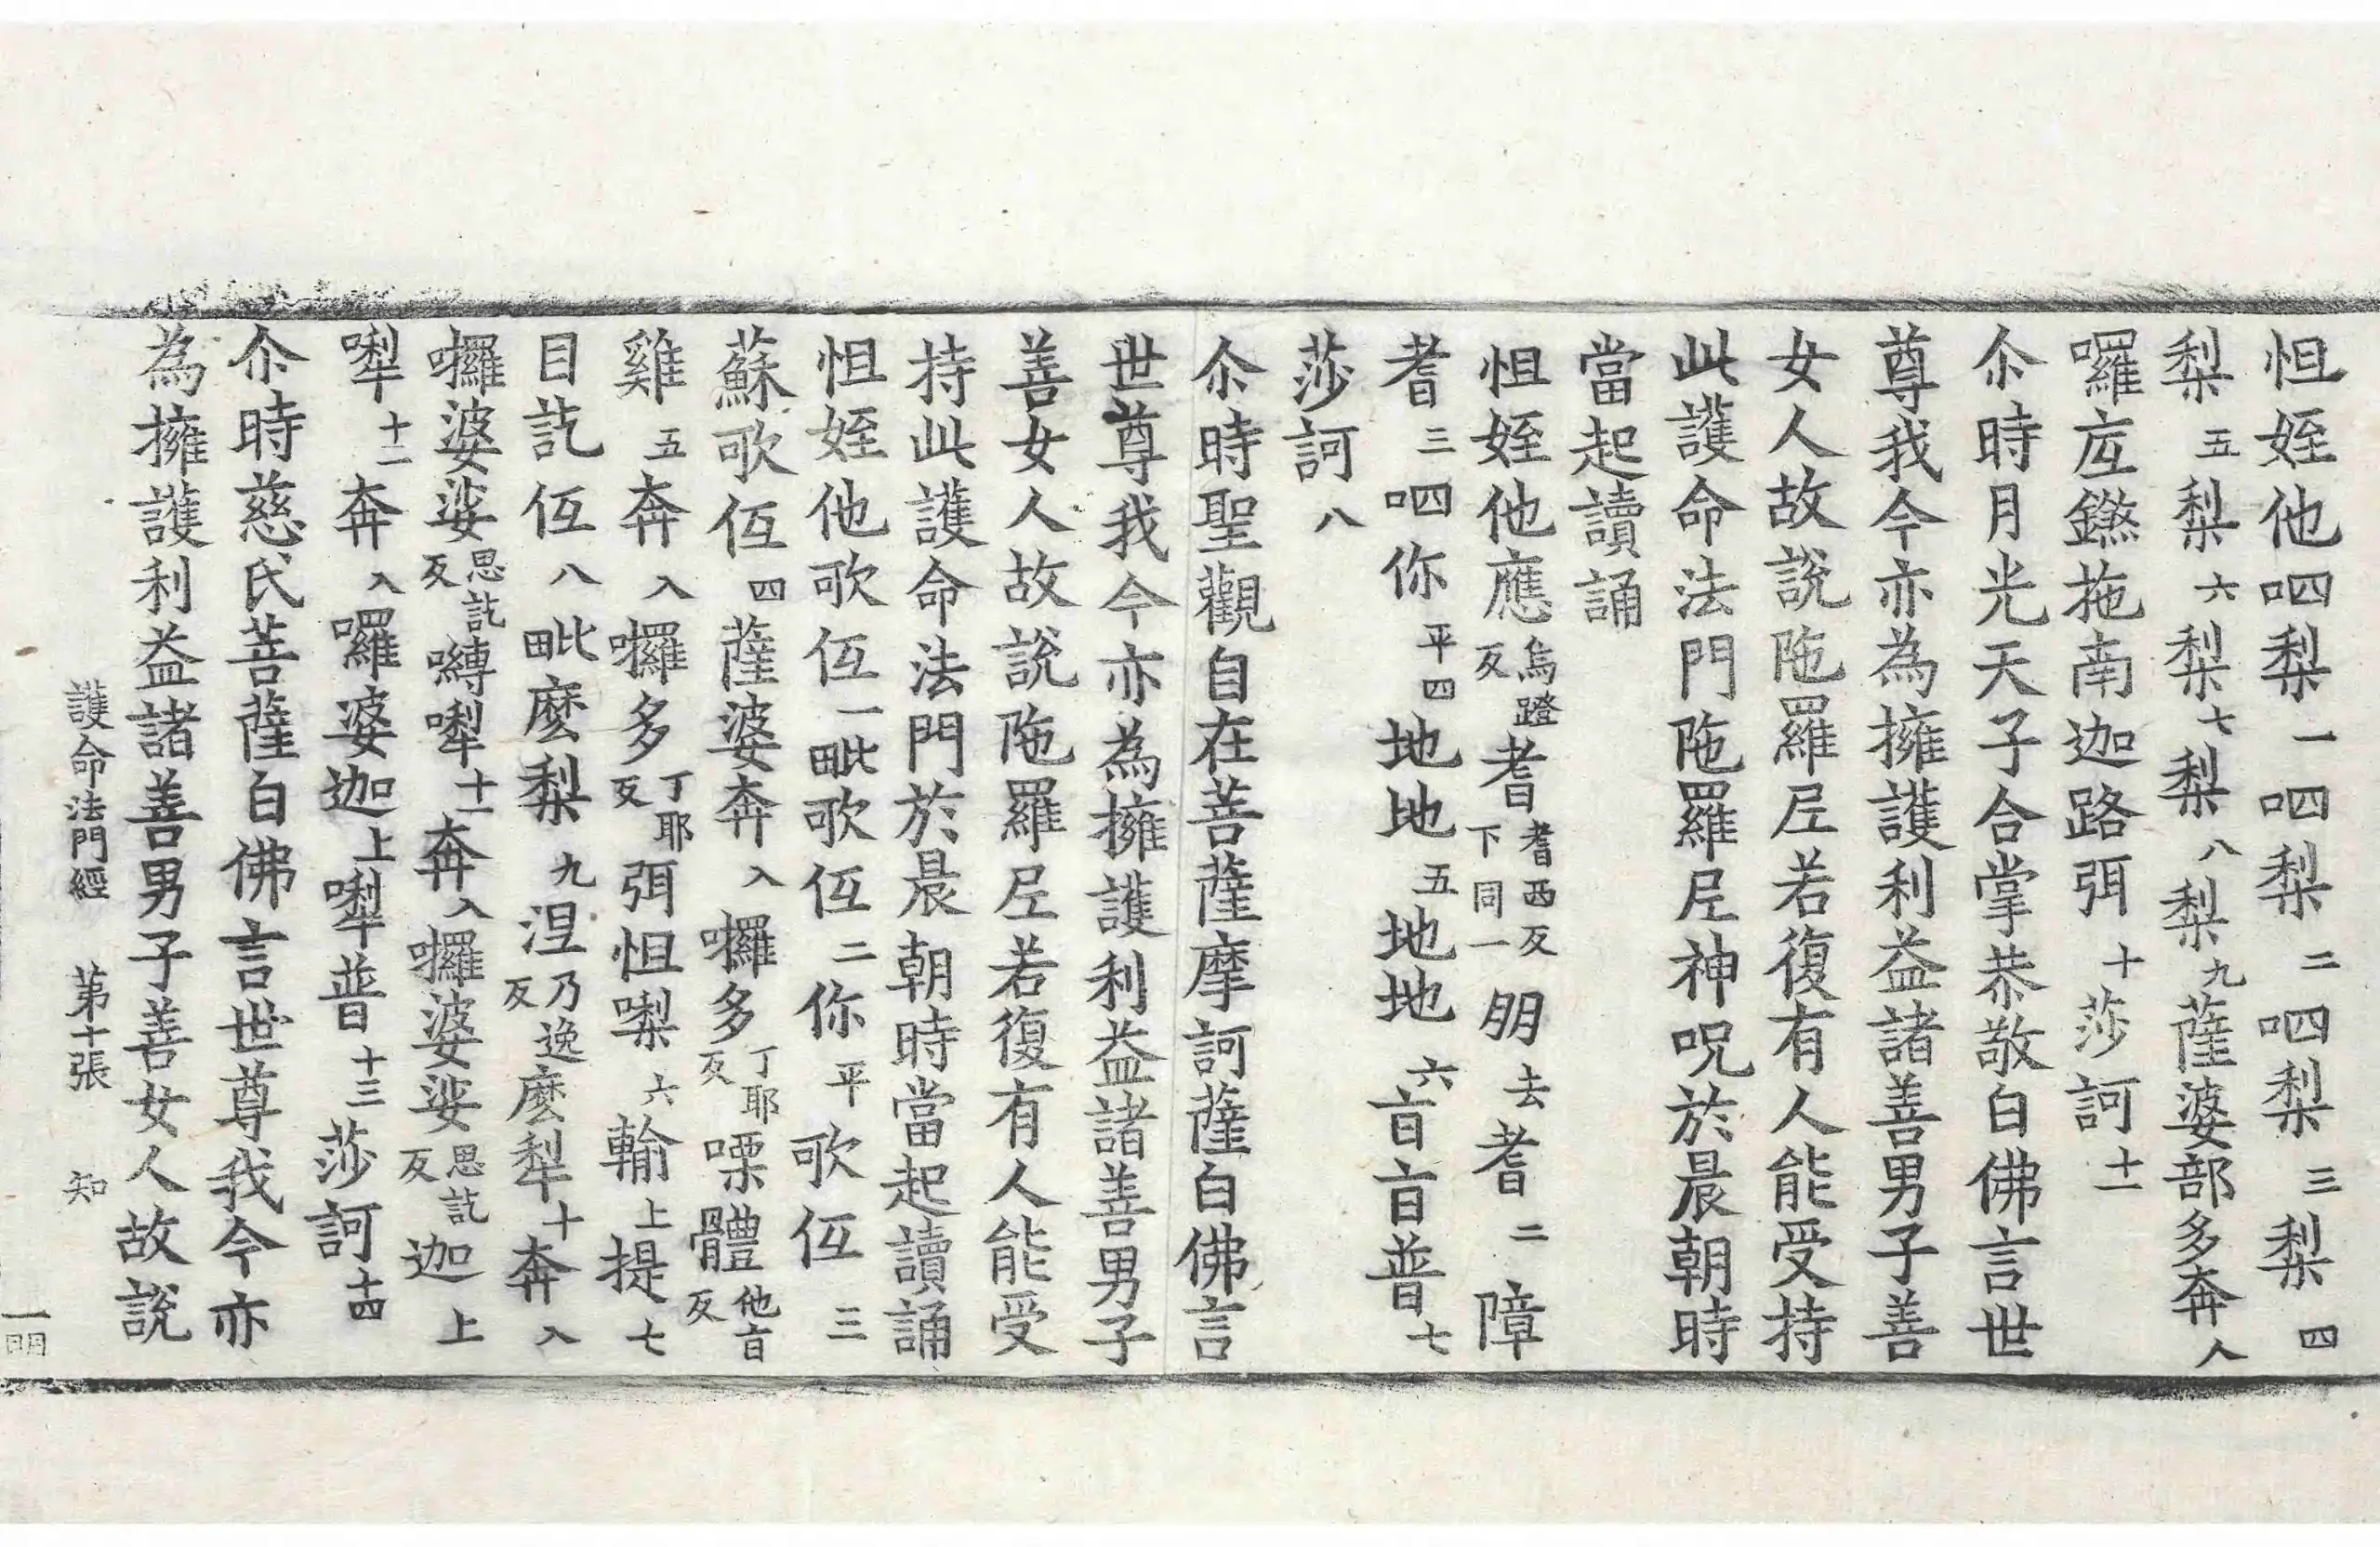 怛姪他呬梨一呬梨二呬梨三梨四
梨五梨六梨七梨八梨九薩婆部多奔入
囉㡳鑠拖南迦路弭十莎訶十一
尒時月光天子合掌恭敬白佛言世
尊我今亦為擁護利益諸善男子善
女人故說陁羅𡰱若復有人能受持
此護命法門陁羅𡰱神呪於晨朝時
當起讀誦
怛姪他應烏蹬反耆耆西反下同一朋去耆二障
耆三呬你平四地地五地地六盲盲普七
莎訶八
尒時聖觀自在菩薩摩訶薩白佛言
世尊我今亦為擁護利益諸善男子
善女人故說陁羅𡰱若復有人能受
持此護命法門於晨朝時當起讀誦
怛姪他歌仾一毗歌仾二你平歌仾三
蘇歌仾四薩婆奔入㘓多丁耶反㗚體他盲反
雞五奔入㘓多丁耶反弭怛㗚六輸上提七
目訖仾八毗麽梨九涅乃逸反麽犁十奔入
㘓婆娑思訖反嚩㗚十一奔入㘓婆娑思訖反迦上
㗚十二奔入囉婆迦上㗚普十三莎訶十四
尒時慈氏菩薩白佛言世尊我今亦
為擁護利益諸善男子善女人故說
護命法門經　第十張　知